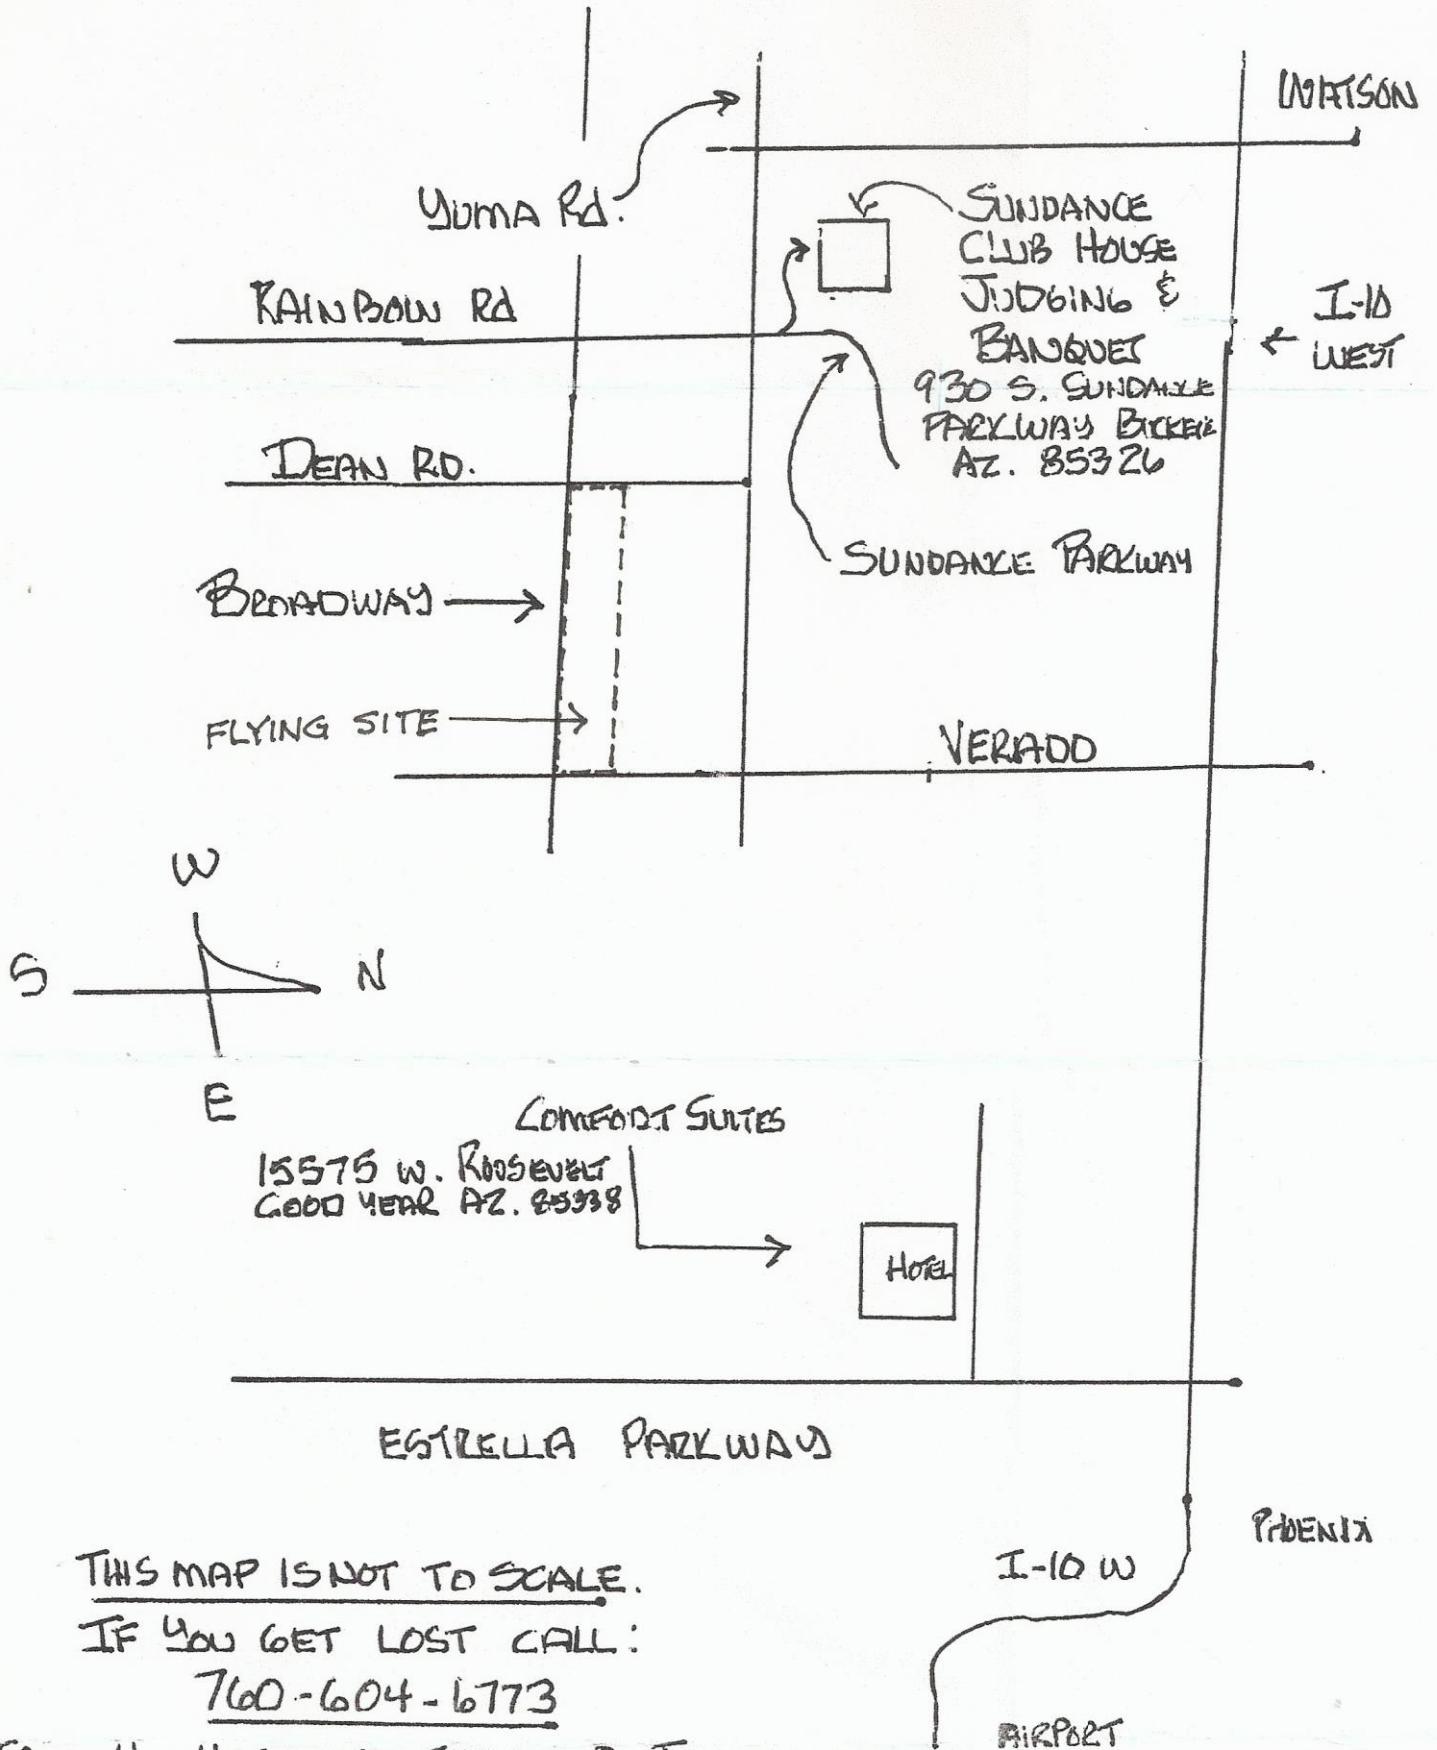 WATSON
YUMA Rd.
SUNDANCE
CLUB HOUSE
JUDGING &
BANQUET
930 S. SUNDANCE
PARKWAY
AZ. 85326
RAINBOW Rd
I-10
WEST
DEAN RD.
SUNDANCE PARKWAY
BROADWAY
FLYING SITE
VERADO
W
S
N
E
COMFORT SUITES
15575 W. ROOSEVELT
GOOD YEAR AZ. 85338
HOTEL
ESTRELLA PARKWAY
PHOENIX
I-10 W
THIS MAP IS NOT TO SCALE.
IF YOU GET LOST CALL:
760-604-6773
AIRPORT